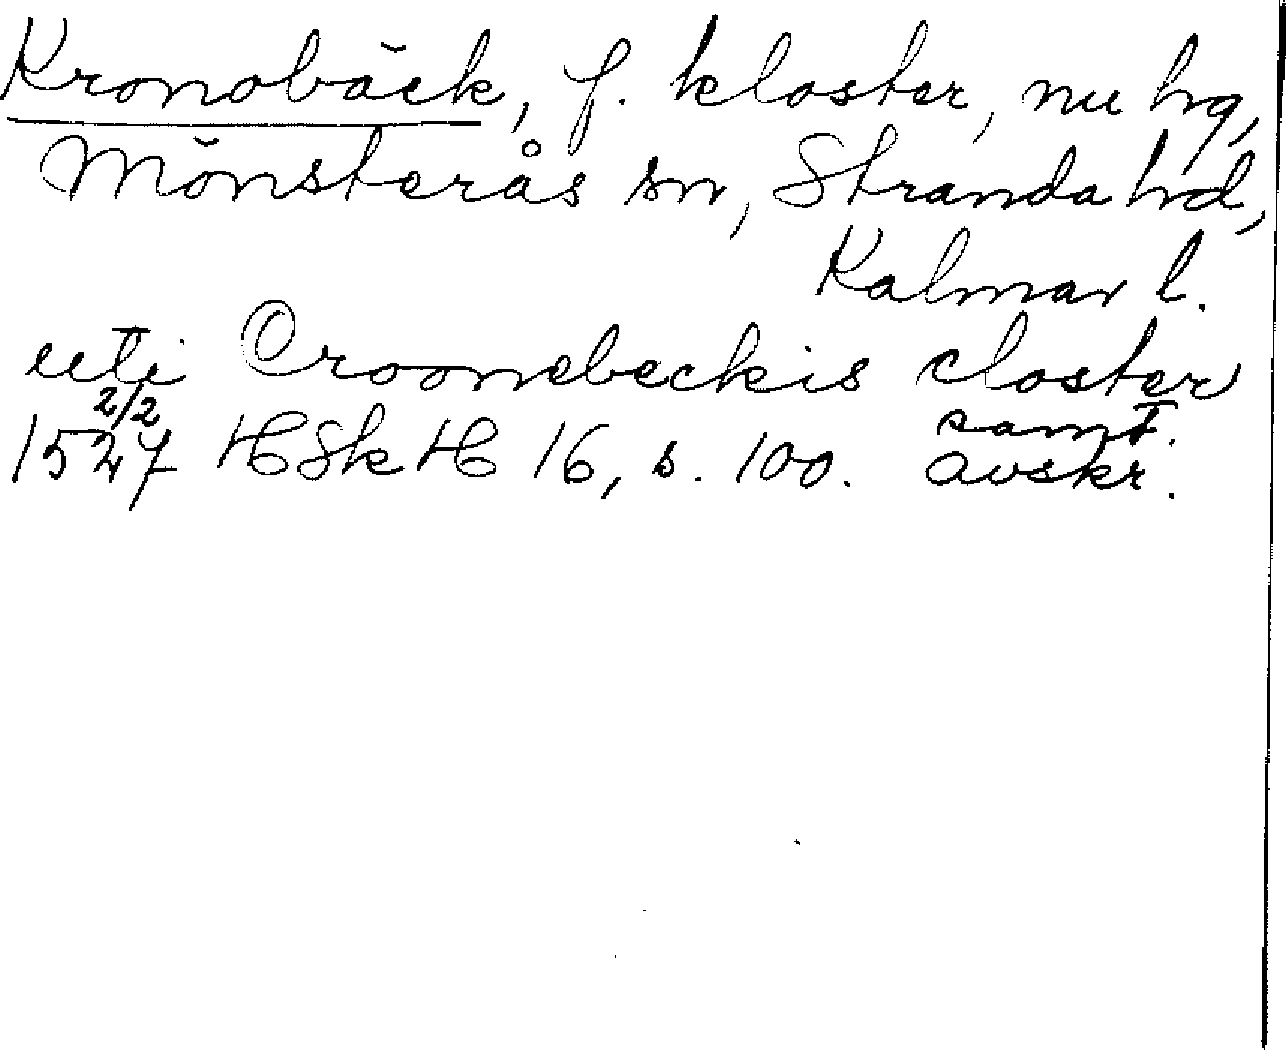 Kronobäck, f. kloster, nu hg,
Mönsterås sn, Stranda hd,
Kalmar l.
uti Croonebeckis closter
1527 2/2 HSkH 16, s. 100. samt. avskr.